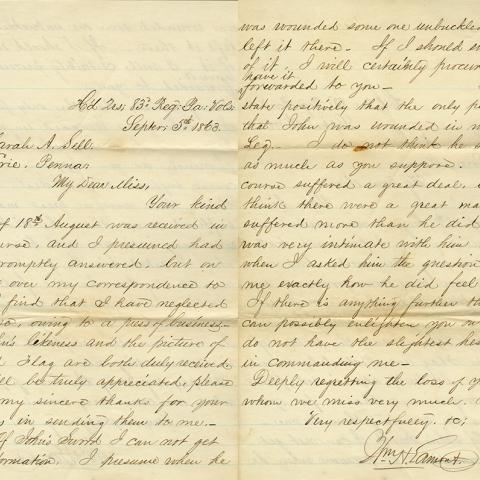 Hd Qrs, 83d Reg: Pa: Vols.
Septbr: 5th 1863.
Sarah A. Sell.
Erie, Penna:
My Dear Miss,
Your kind
of 18th August was received in
course, and I presumed had
promptly answered, but on
over my correspondence to
find that I have neglected
so, owing to a press of business.
likeness and the picture of
Flag are both duly received.
be truly appreciated, please
my sincere thanks for your
in sending them to me.-
If John's Sword I can not get
information. I presume when he
was wounded some one unbuckled
left it there. If I should
of it. I will certainly procure
have it
forwarded to you-
state positively that the only
that John was wounded in
Leg.- I do not think he
as much as you suppose.
course suffered a great deal,
think there were a great
suffered more than he did
was very intimate with him
when I asked him the question
me exactly how he did feel
If there is anything further
can possibly enlighten you
do not have the slightest
in commanding me-
Deeply regretting the loss of
whom we miss very much.
Very respectfully. &c;
Wm. H. Lamont.